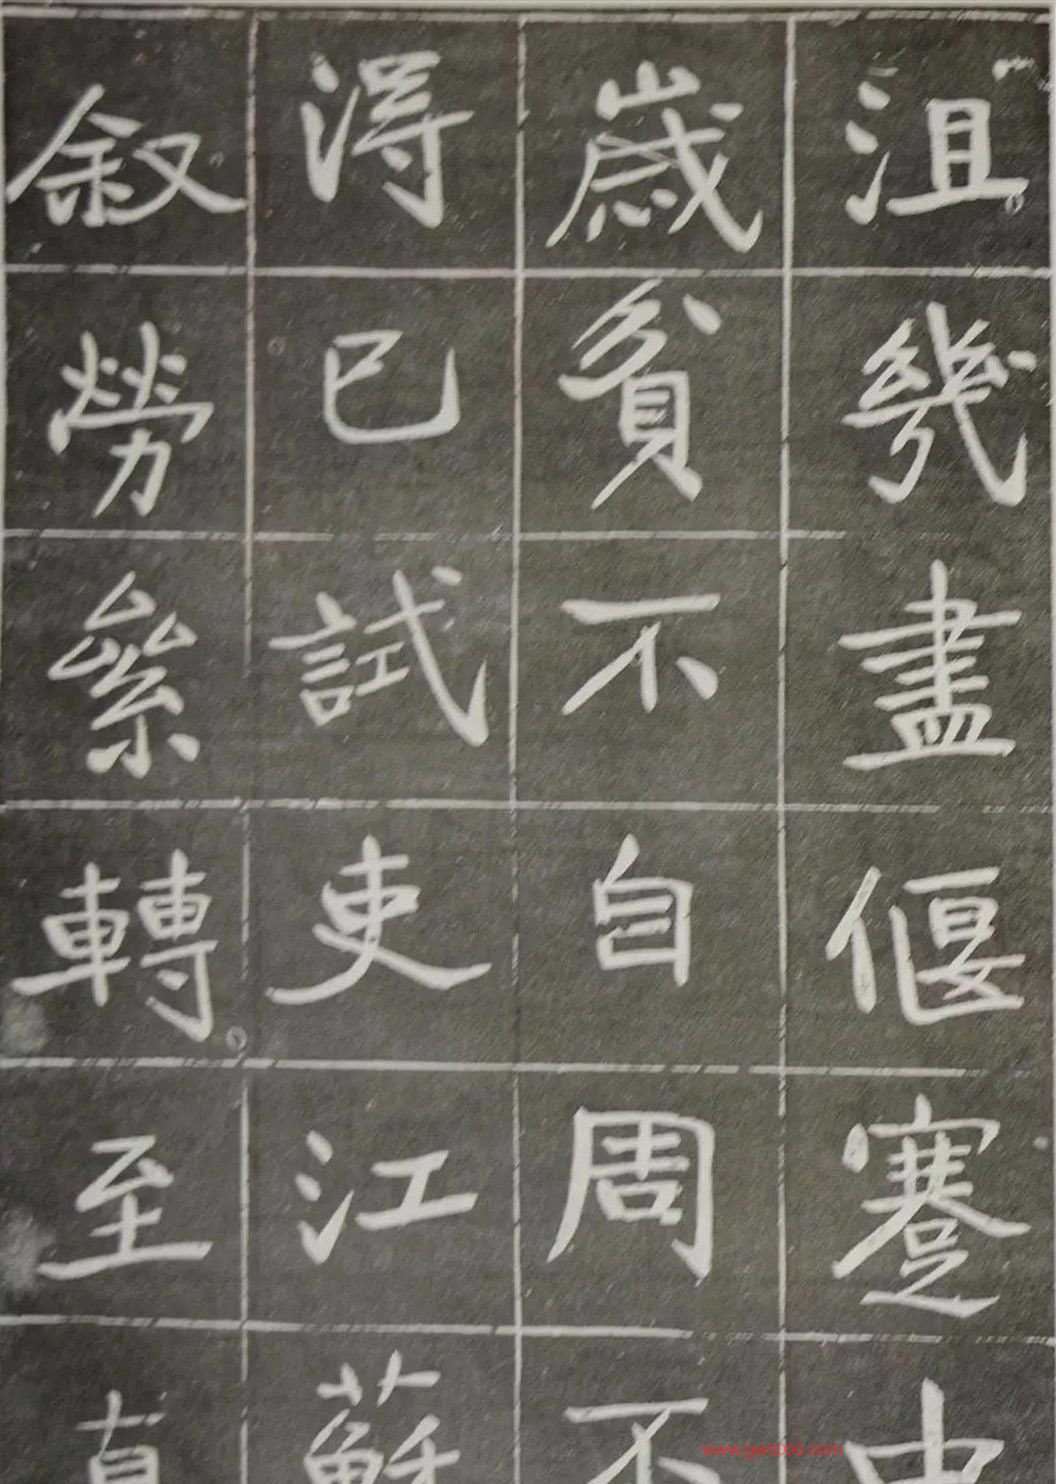 沮幾盡偃蹇中
歲貧不自周不
得已試吏江蘇
敘勞絫轉至直
www.gw5000.com